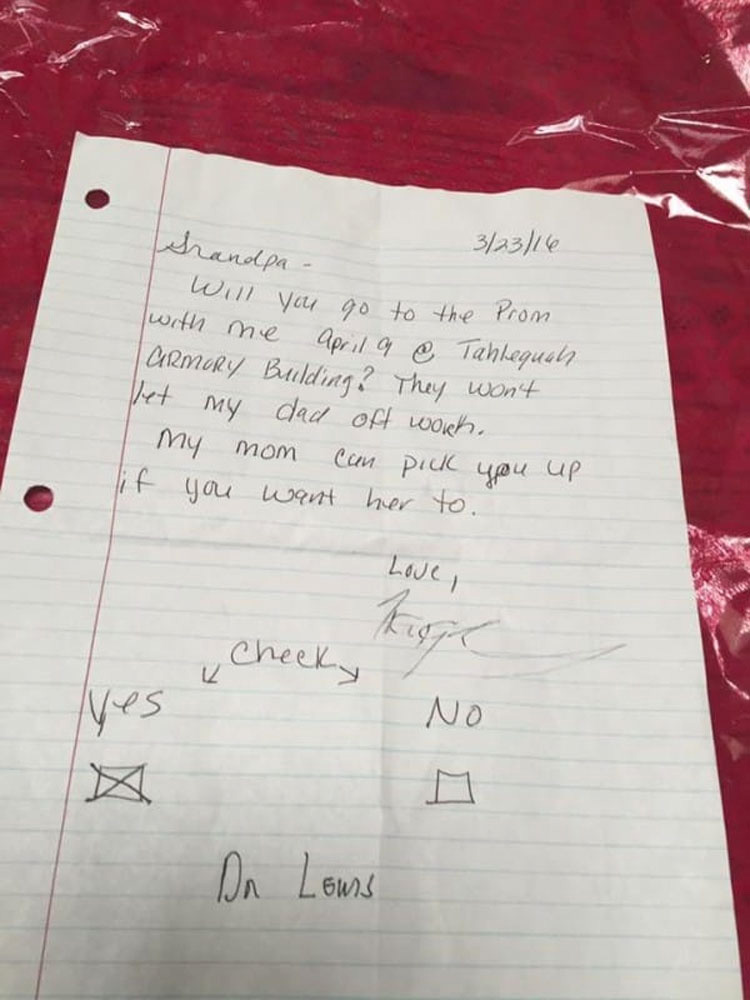 3/23/16
Grandpa -
Will you go to the Prom
with me April 9 @ Tahlequah
ARMORY Building? They won't
let my dad off work.
My mom can pick you up
if you want her to.
Love,
Check
Yes
No
Dr Lewis